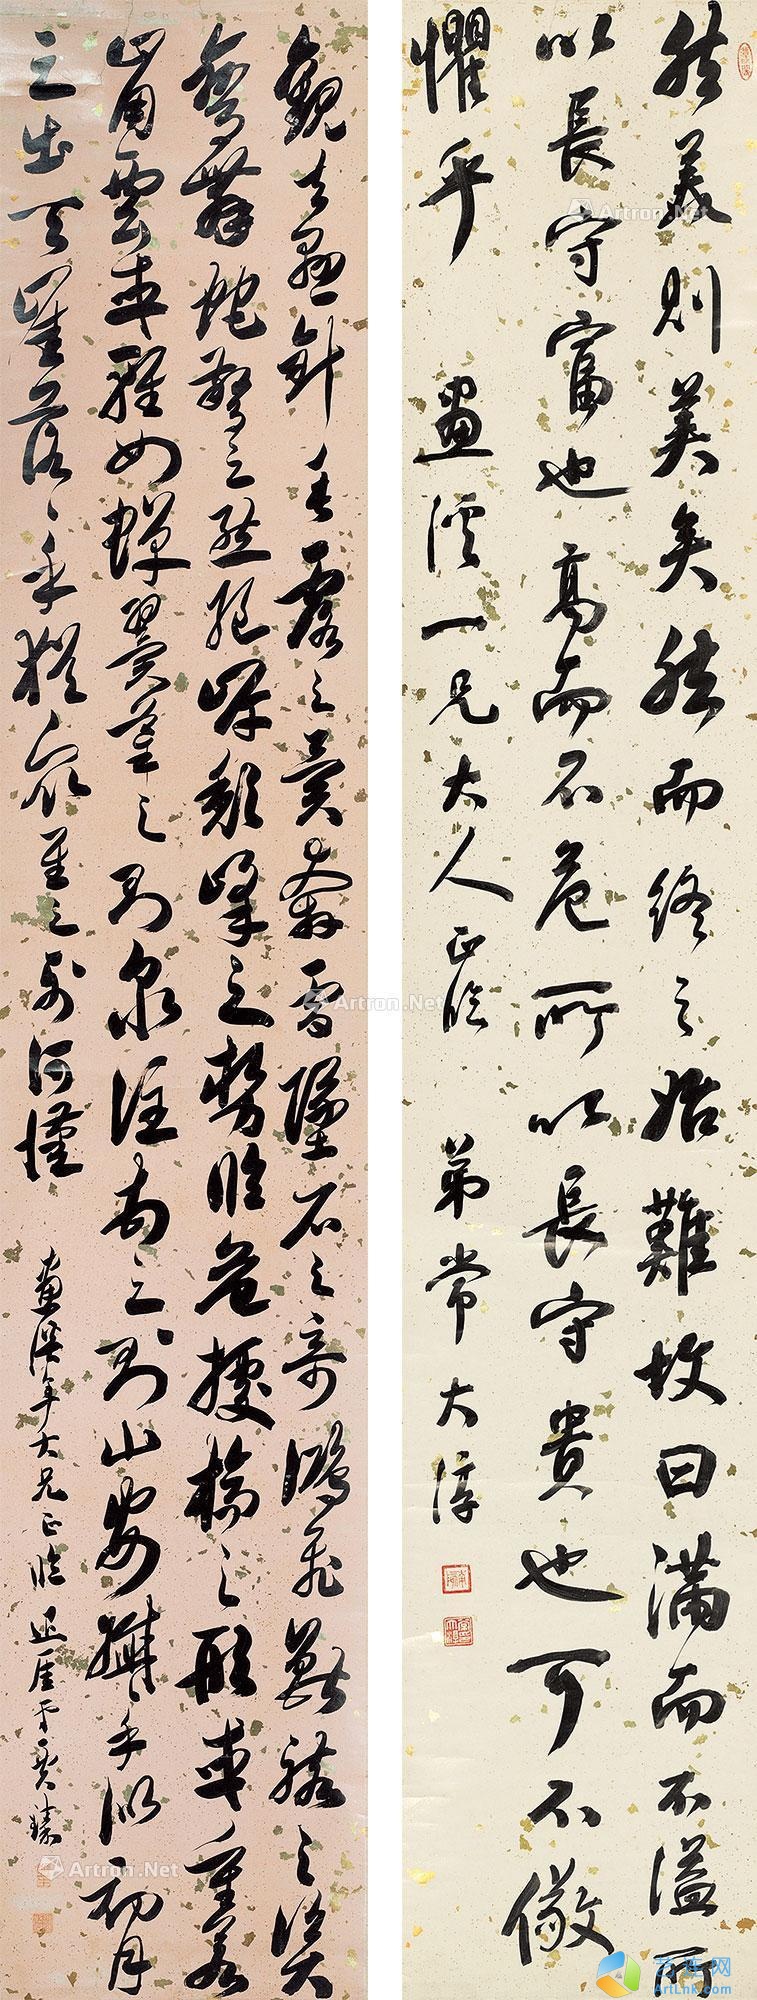 然美則美矣然而終之始難故曰滿而不溢所
以長守富也高而不危所以長守貴也可不儆
懼乎 畫溪一兄大人正臨 弟常大淳
觀夫懸針垂露之異奔雷墜石之奇鴻飛獸駭之資
鸞舞蛇驚之態絕岸頹峰之勢臨危據槁之形或重若
崩雲或輕如蟬翼導之則泉注頓之則山安纖纖乎似初月
之出天崖落落乎猶眾星之列河漢
畫溪年大兄正臨
Artron.Net
Artron.Net
Artron.Net
艺连网
ArtLnk.com